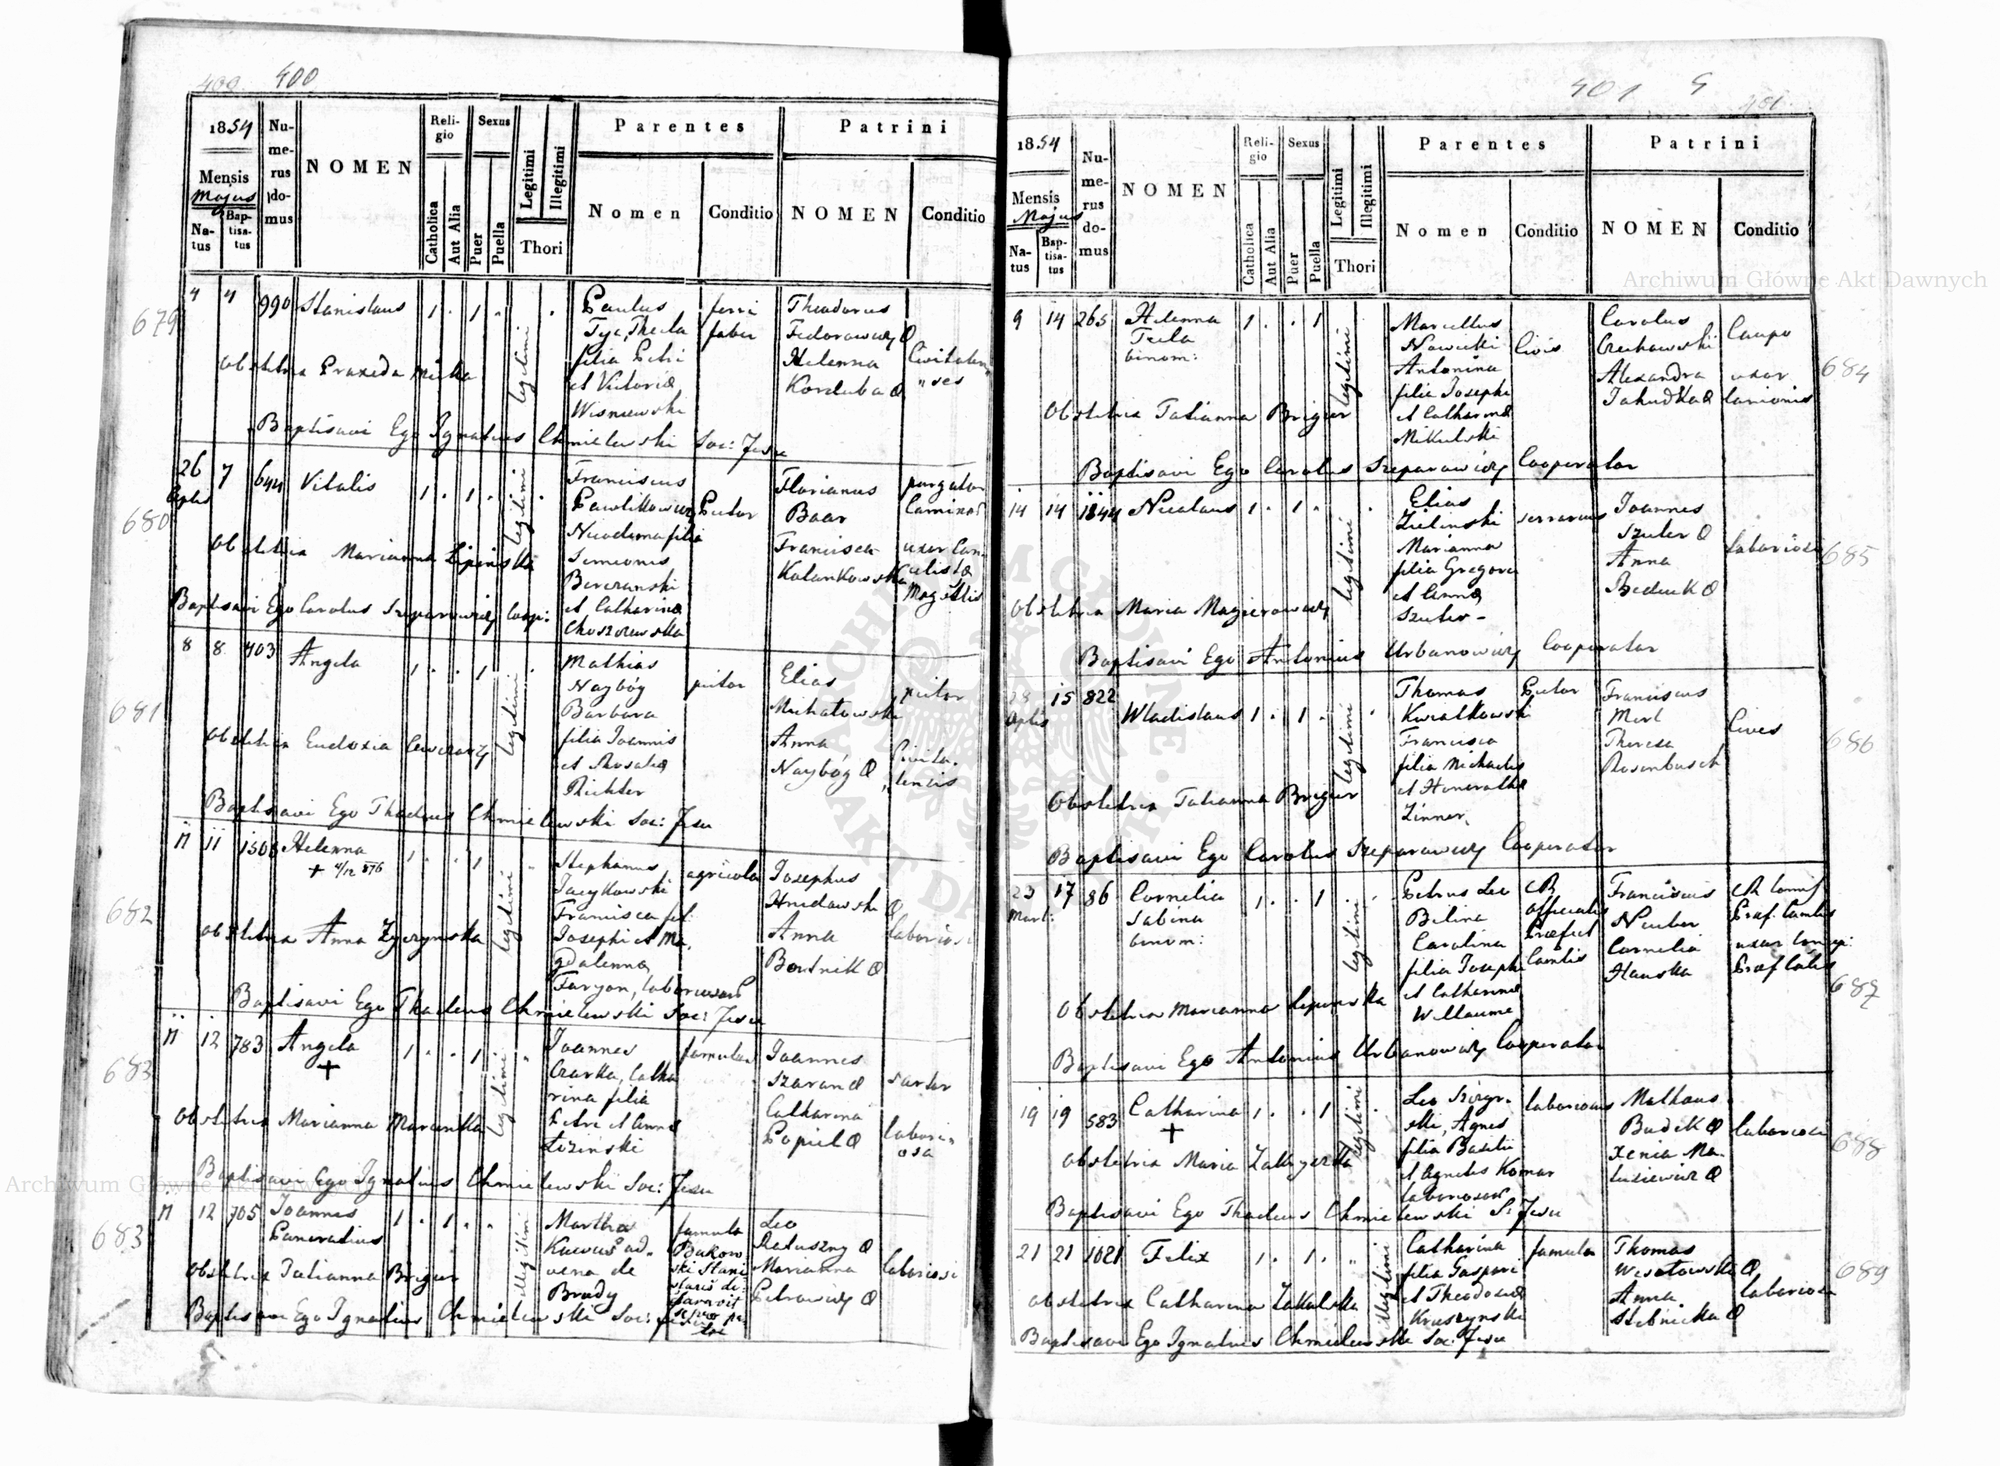 400 400
1854
Mensis
Majus
Natus
Baptisatus
Numerus domus
NOMEN
Religio
Catholica
Aut Alia
Sexus
Puer
Puella
Legitimi
Illegitimi
Thori
Parentes
Nomen
Conditio
Patrini
NOMEN
Conditio
679
4 4 990 Stanislaus 1 . 1 .
legitimi
Paulus
Tyc, Thecla
filia Petri
et Victoriæ
Wisniewski
ferri
faber
Theodorus
Fedorowicz
Helenna
Korduba
Civitaten
"ses
Obstetrix Praxeda Micka
Baptisavi Ego Ignatius Chmielewski Soc: Jesu
680
26 7 644 Vitalis 1 . 1 .
Aplis
legitimi
Franciscus
Pawlikowicz
Nicodema filia
Simeonis
Berezanski
et Catharinæ
Pictor
Florianus
Baar
Francisca
Kalankowska
purgator
Caminor
uxor Can
celistæ
Obstetrix Marianna Lipinska
Baptisavi Ego Carolus Szparowicz Coop:
681
8 8 403 Angela 1 . . 1
legitimi
Mathias
Naybóg
Barbara
filia Joannis
et Rosaliæ
Richter
pictor
Elias
Michatowski
Anna
Naybóg
pictor
Civita
"tensis
Obstetrix Eudoxia
Baptisavi Ego Thadeus Chmielewski Soc: Jesu
682
11 11 1506 Helenna 1 . . 1
+ 4/12 876
legitimi
Stephanus
Jacykowski
Francisca fil:
Josephi et Ma
gdalenna
Faryon, laboriosor
agricola
Josephus
Hrudawski
Anna
Bortnik
laboriosi
Obstetrix Anna Zyczynska
Baptisavi Ego Thadeus Chmielewski Soc: Jesu
683
11 12 783 Angela 1 . . 1
+
legitimi
Joannes
Czarka, Catha
rina filia
Petri et Annæ
Lozinski
famulus
Joannes
Szaran
Catharina
Popiel
sartor
labori
osa
Obstetrix Marianna
Baptisavi Ego Ignatius Chmielewski Soc: Jesu
683
11 12 705 Joannes 1 . 1 .
Pancratius
illegitimi
Martha
ad
vena de
Brody
famula
Leo
Ratuszny
Marianna
Petrowicz
laboriosi
Obstetrix Tatianna Brygier
Baptisavi Ego Ignatius Chmielewski Soc:
401 401
1854
Mensis
Majus
Natus
Baptisatus
Numerus domus
NOMEN
Religio
Catholica
Aut Alia
Sexus
Puer
Puella
Legitimi
Illegitimi
Thori
Parentes
Nomen
Conditio
Patrini
NOMEN
Conditio
684
9 14 265 Helenna 1 . . 1
Tecla
binom:
legitimi
Marcellus
Nowicki
Antonina
filia Josephi
et Catharinæ
Mikulski
Civis
Carolus
Czechowski
Alexandra
Jahudka
Caupo
uxor
Obstetrix Tatianna Brygier
Baptisavi Ego Carolus Szparowicz Cooperator
685
14 14 Nicolaus 1 . 1 .
legitimi
Elias
Zielinski
Marianna
filia Gregori
et Annæ
Szuter
serrarius
Joannes
Szuter
Anna
Bedriuk
laboriosi
Obstetrix Maria Magierowicz
Baptisavi Ego Antonius Urbanowicz Cooperator
686
28 15 822 Wladislaus 1 . 1 .
Aplis
legitimi
Thomas
Kwiatkowski
Francisca
filia Michaelis
et Honorathæ
Zinner
Pictor
Franciscus
Mert
Theresa
Rosenbusch
Cives
Obstetrix Tatianna Brygier
Baptisavi Ego Carolus Szparowicz Cooperator
687
23 17 86 Cornelia 1 . . 1
Mart: Sabina
binom:
legitimi
Petrus Leo
Bilina
Carolina
filia Josephi
et Catharinæ
Willaume
CR
officialis
Franciscus
Neuber
Cornelia
Hauska
Obstetrix Marianna Lipinska
Baptisavi Ego Antonius Urbanowicz Cooperator
688
19 19 583 Catharina 1 . . 1
+
legitimi
Leo
ski, Agnes
filia Basilii
et Agnetis Komar
laboriosor
laboriosus
Matheus
Budik
Xenia Ma
tusiewicz
laboriosi
Obstetrix Maria
Baptisavi Ego Thadeus Chmielewski S: Jesu
689
21 21 1021 Felix 1 . 1 .
illegitimi
Catharina
filia Gaspari
et Theodosiæ
Kruszynski
famula
Thomas
Wesołowski
Anna
Stebnicka
laboriosi
Obstetrix Catharina Zakulska
Baptisavi Ego Ignatius Chmielewski Soc: Jesu
Archiwum Główne Akt Dawnych
Archiwum Główne Akt Dawnych
ARCHIWUM GŁÓWNE AKT DAWNYCH